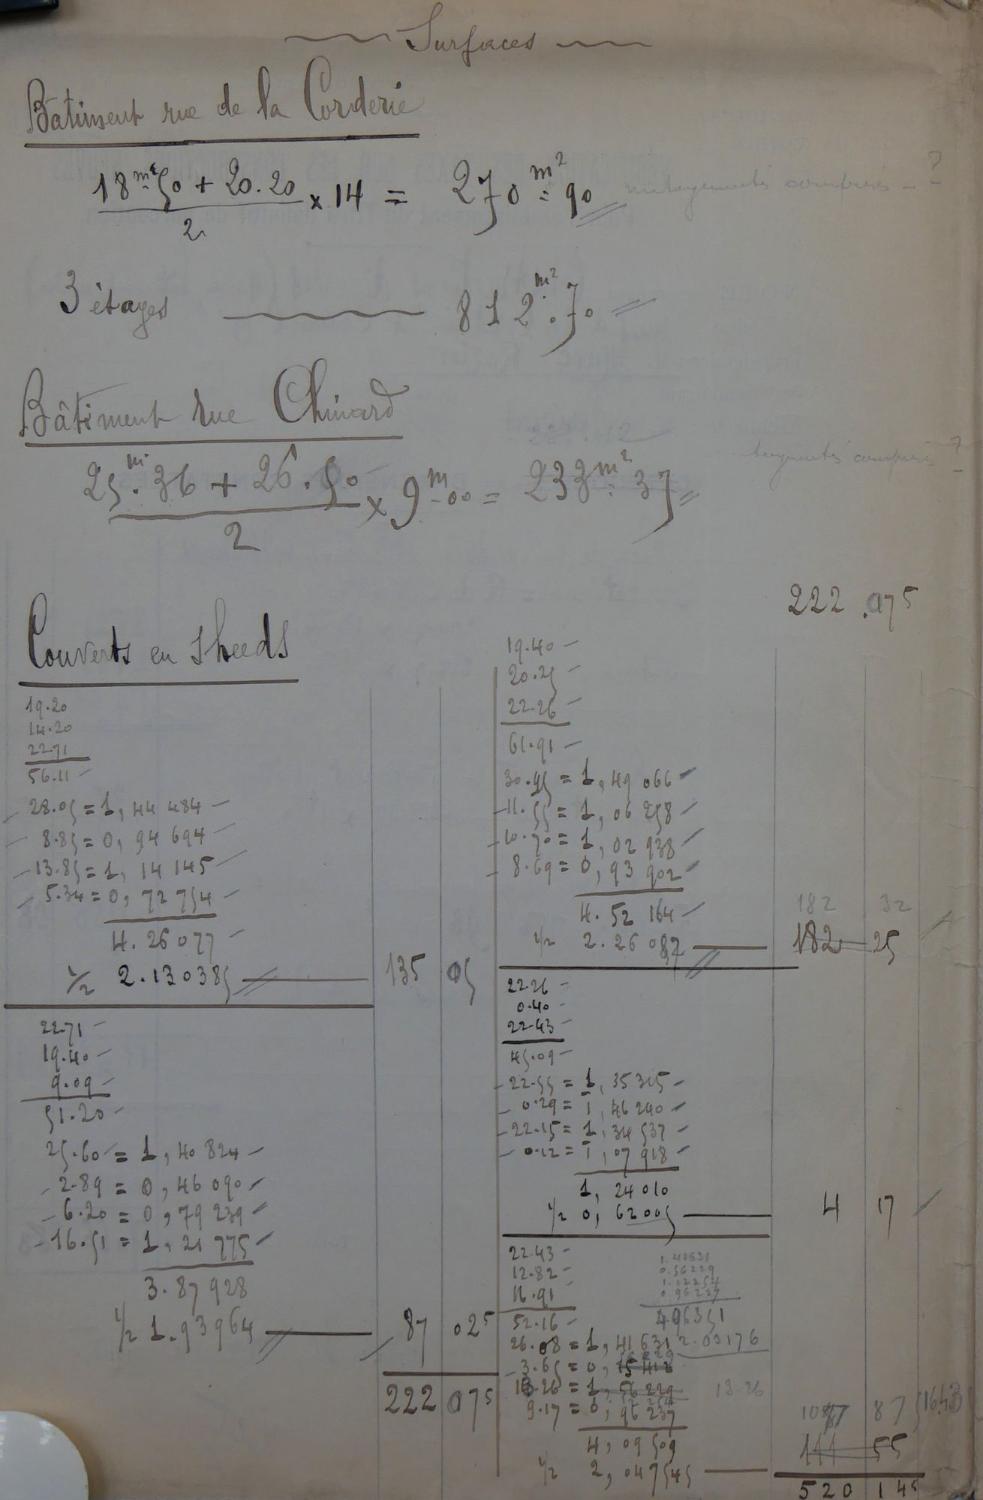 Surfaces
Bâtiment rue de la Corderie
18m.50 + 20.20 / 2 × 14 = 270m².90 mitoyennetés comprises - ?
3 étages 812m².70
Bâtiment rue Chinard
25m.36 + 26.50 / 2 × 9m.00 = 233m².37 comprises ?
Couverts en sheeds
19.20
14.20
22.71
56.11
28.05 = 1,44 484
8.85 = 0,94 694
13.85 = 1,14 145
5.34 = 0,72 754
4.26 077
½ 2.13 0385 135 05
22.71
19.40
9.09
51.20
25.60 = 1,40 824
2.89 = 0,46 090
6.20 = 0,79 239
16.51 = 1,21 775
3.87 928
½ 1.93964 87 025
222 075
222.075
19.40
20.25
22.26
61.91
30.95 = 1,49 066
11.55 = 1,06 258
10.70 = 1,02 938
8.69 = 0,93 902
4.52 164
182 32
½ 2.26 082 182 25
22.26
0.40
22.43
45.09
22.55 = 1,35 315
0.29 = 1,46 240
22.15 = 1,34 537
0.12 = 1,07 918
1,24 010
½ 0,62005 4 17
22.43
12.82
16.91
52.16
496351
26.08 = 1,41 631 2.03176
3.65 = 0,
13.26 = 1, 13-26
9.17 = 0,96 237
4,09 509
87
½ 2,047545 111 55
520 145